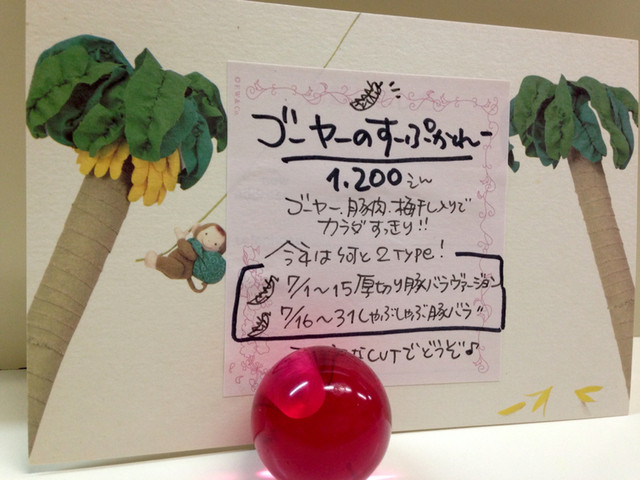 ゴーヤーのすーぷかれー
1.200えん
ゴーヤー、豚肉、梅干し入りで
カラダすっきり!!
今年は何と2TYPE!
7/1〜15厚切り豚バラヴァージョン
7/16〜31しゃぶしゃぶ豚バラ〃
なCUTでどうぞ♪